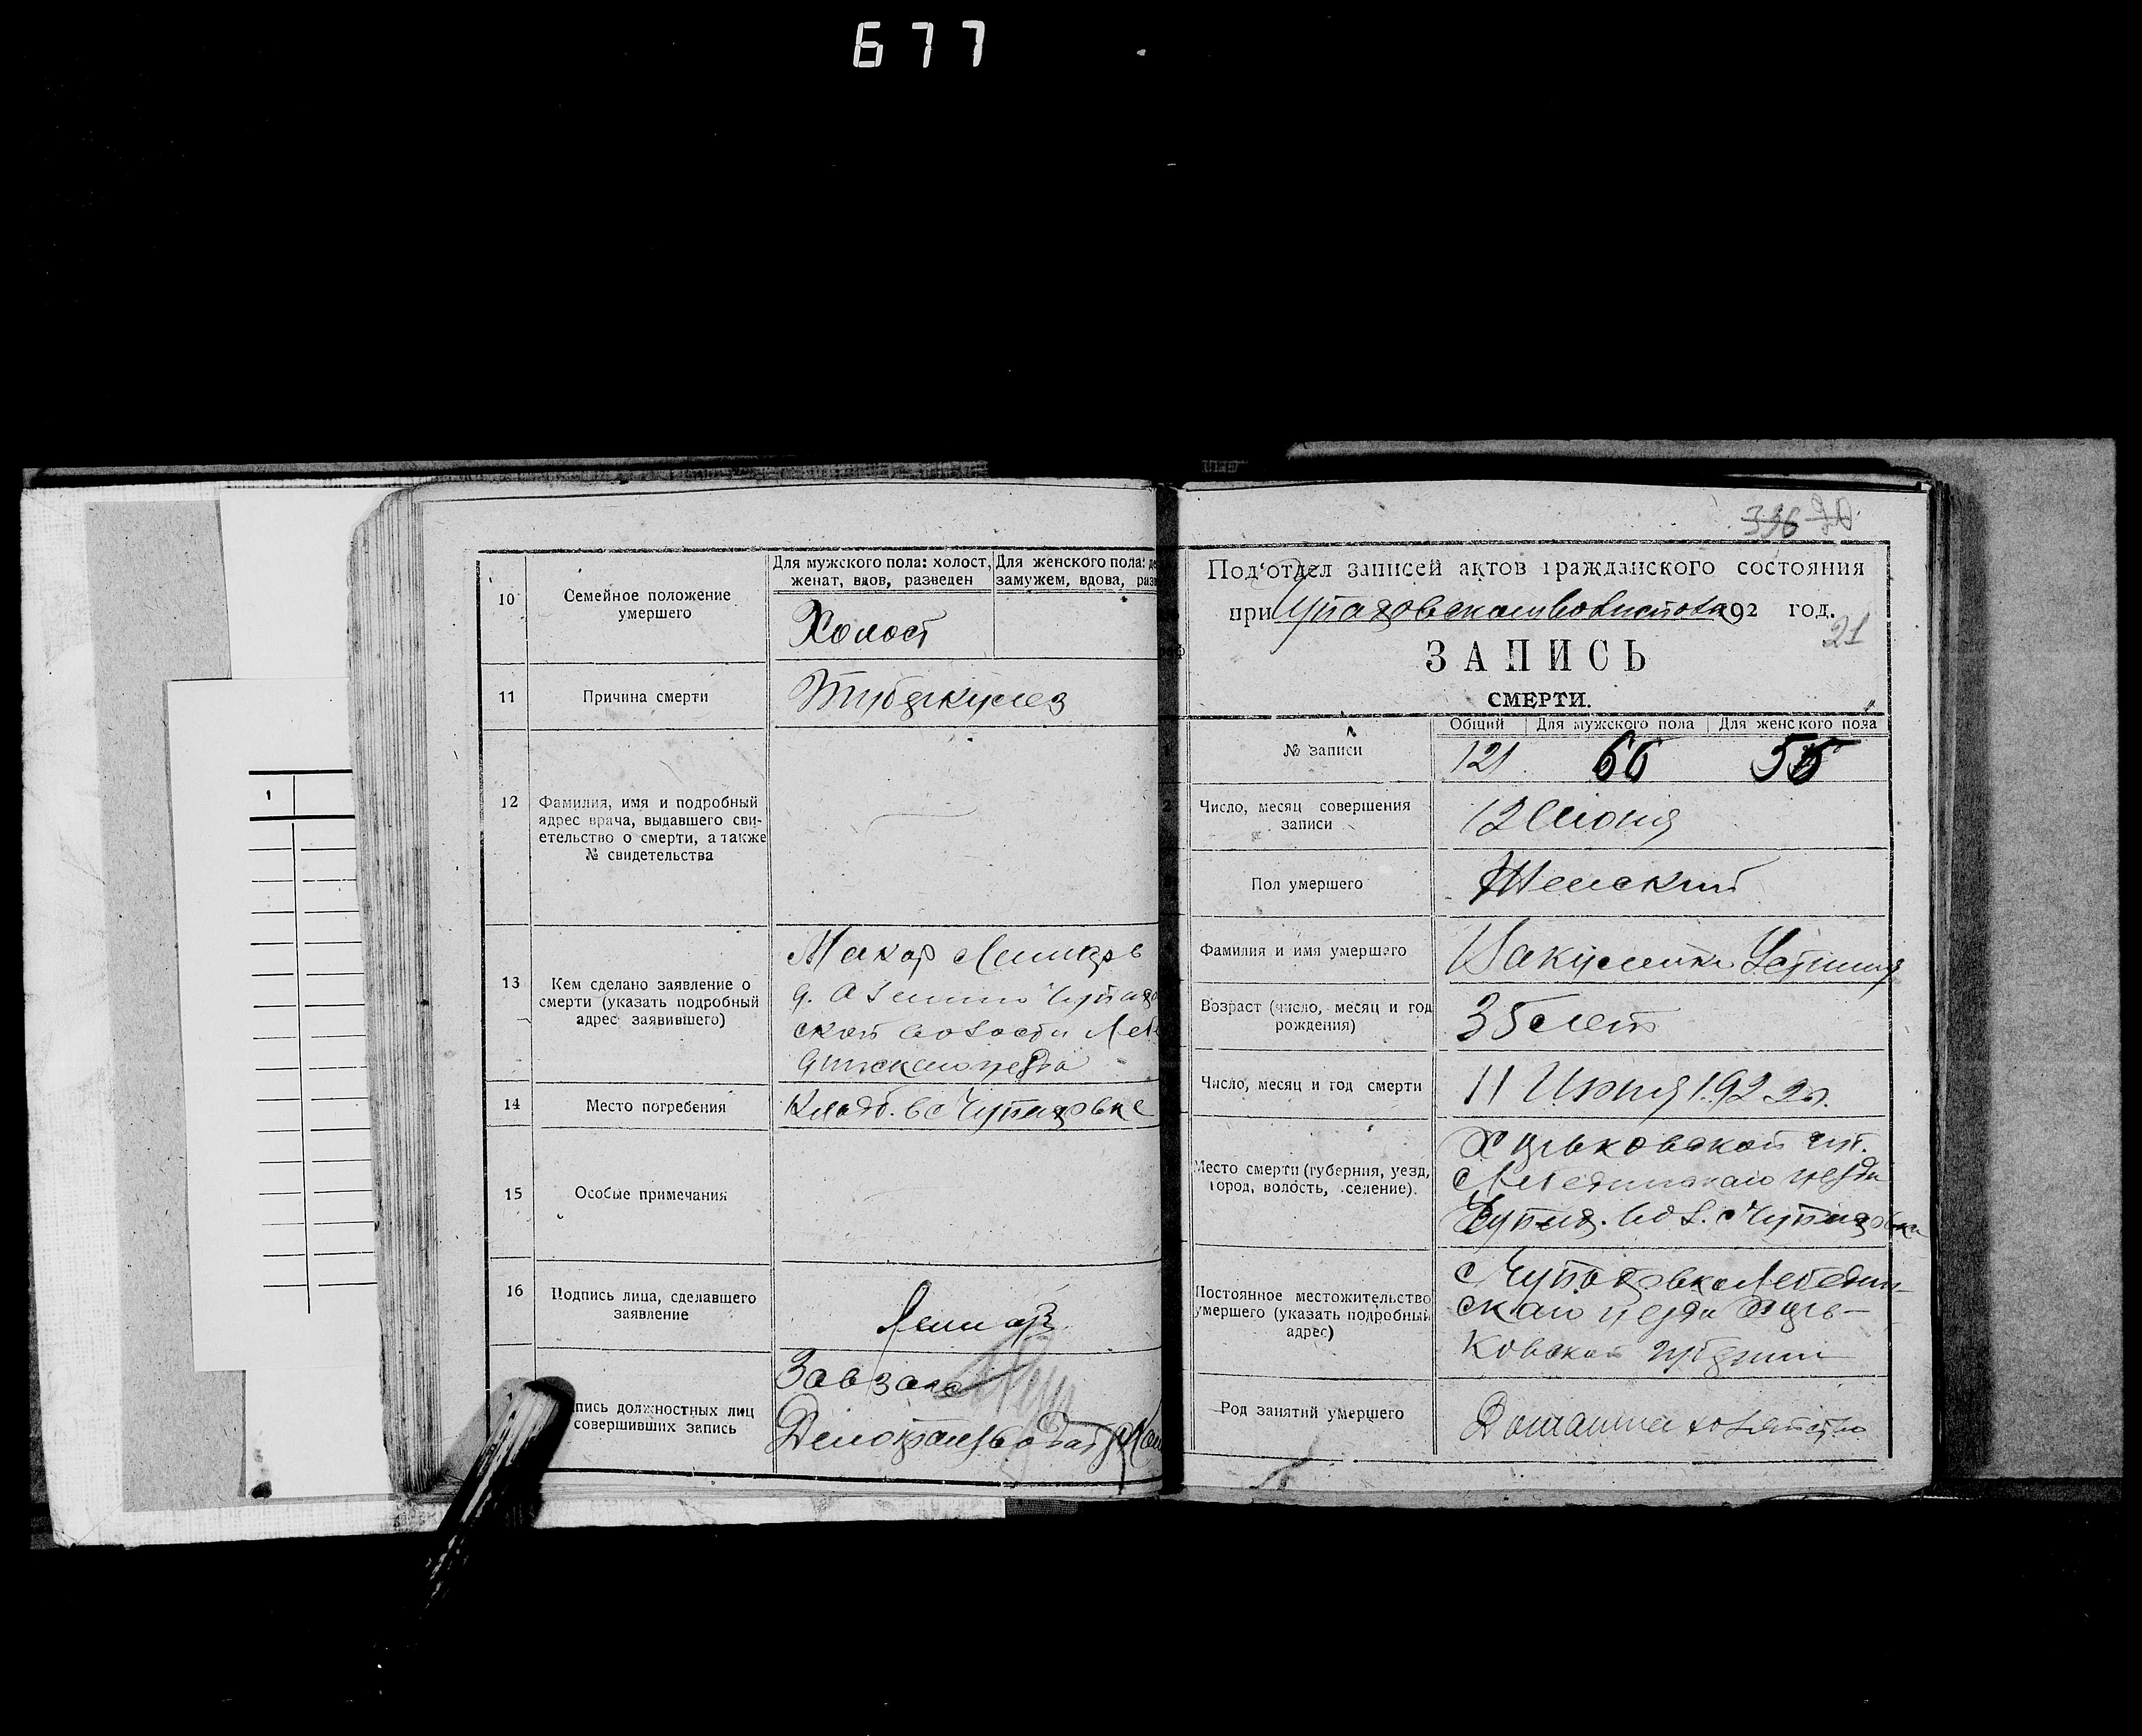 677
10
Семейное положение
умершего
Для мужского пола: холост,
женат, вдов, разведен
Для женского пола:
замужем, вдова,
Холост
11
Причина смерти
12
Фамилия, имя и подробный
адрес врача, выдавшего сви-
етельство о смерти, а также
№ свидетельства
13
Кем сделано заявление о
смерти (указать подробный
адрес заявившего)
Макар
14
Место погребения
Кладб. в с Чупаховке
15
Особые примечания
16
Подпись лица, сделавшего
заявление
пись должностных лиц
совершивших запись
Завзагс
396 20
Под'отдел записей актов гражданского состояния
при 92 год.
21
ЗАПИСЬ
СМЕРТИ.
Общий Для мужского пола Для женского пола
№ записи
121 66 55
2
Число, месяц совершения
записи
12 Июня
Пол умершего
Женский
Фамилия и имя умершего
Возраст (число, месяц и год
рождения)
35 лет
Число, месяц и год смерти
11 Июня 1922 г.
Место смерти (губерния, уезд,
город, волость, селение).
Харьковской губ.
Лебединскаго уезда
Чупах. вол. с Чупаховка
Постоянное местожительство
умершего (указать подробный
адрес)
с Чупаховка Лебедин-
скаго уезда Харь-
ковской губернии
Род занятий умершего
Домашнее хозяйство
1